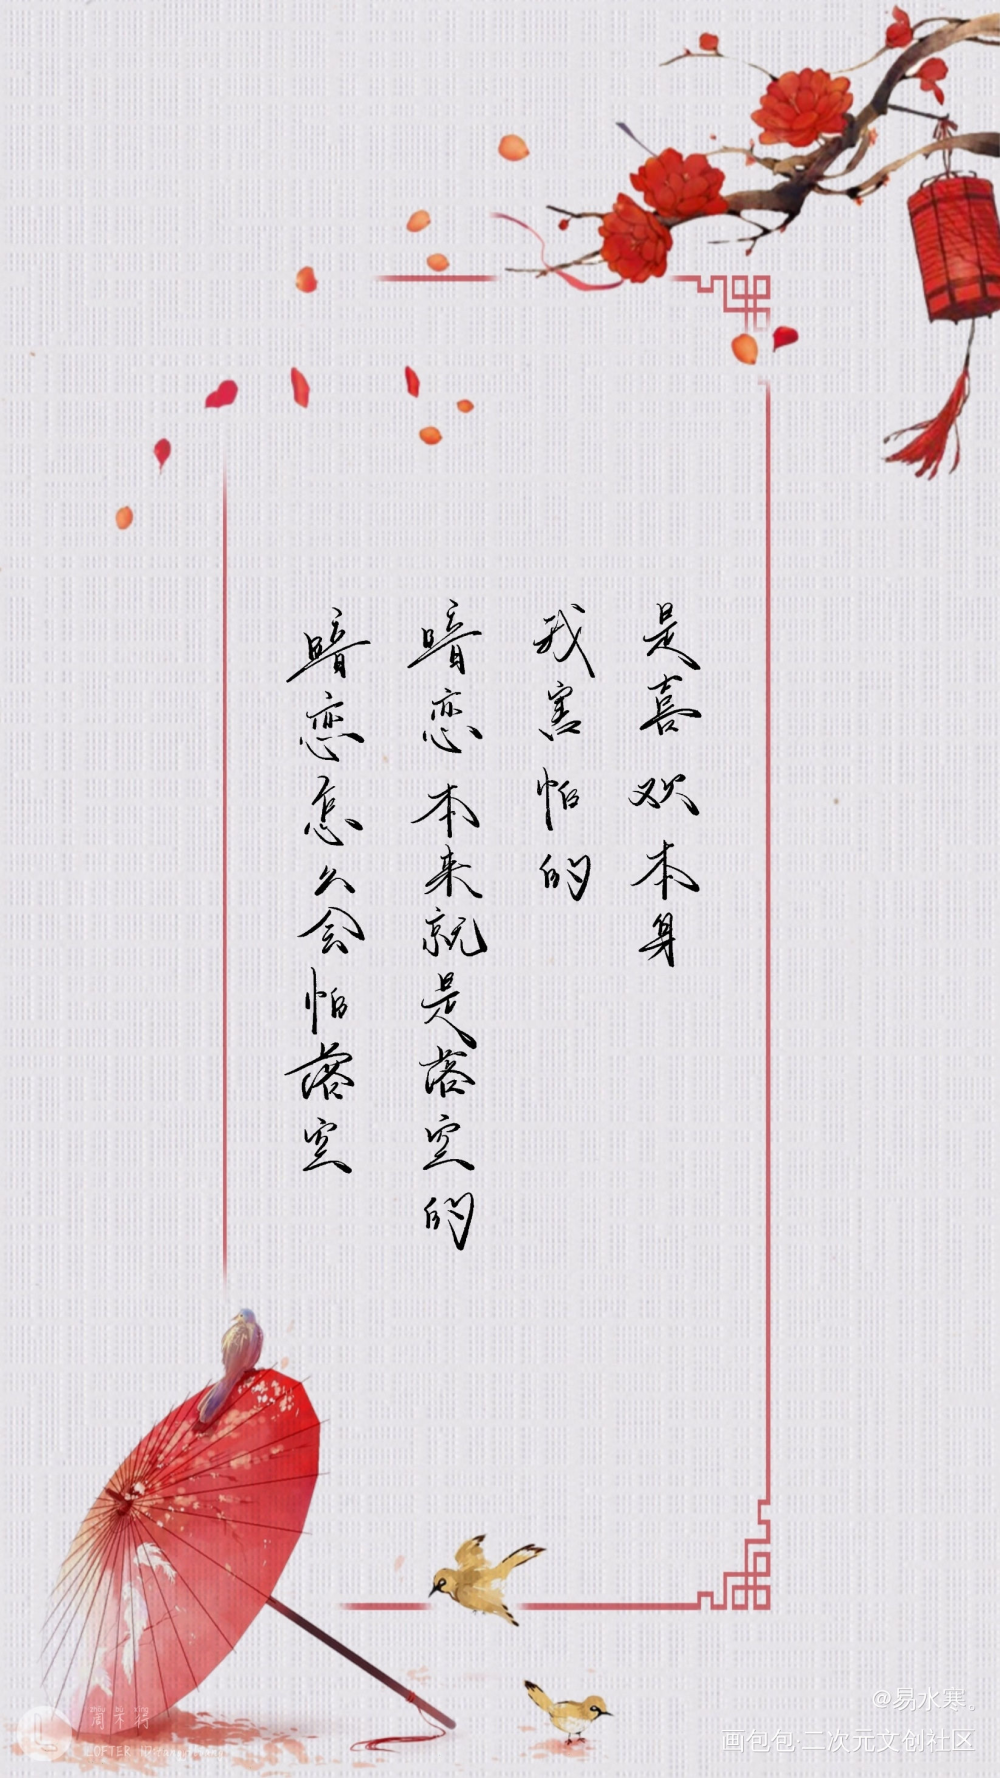 暗恋怎么会怕落空
暗恋本来就是落空的
我害怕的
是喜欢本身
zhou bu xing
周不行
LOFTER
@易水寒。
画包包·二次元文创社区